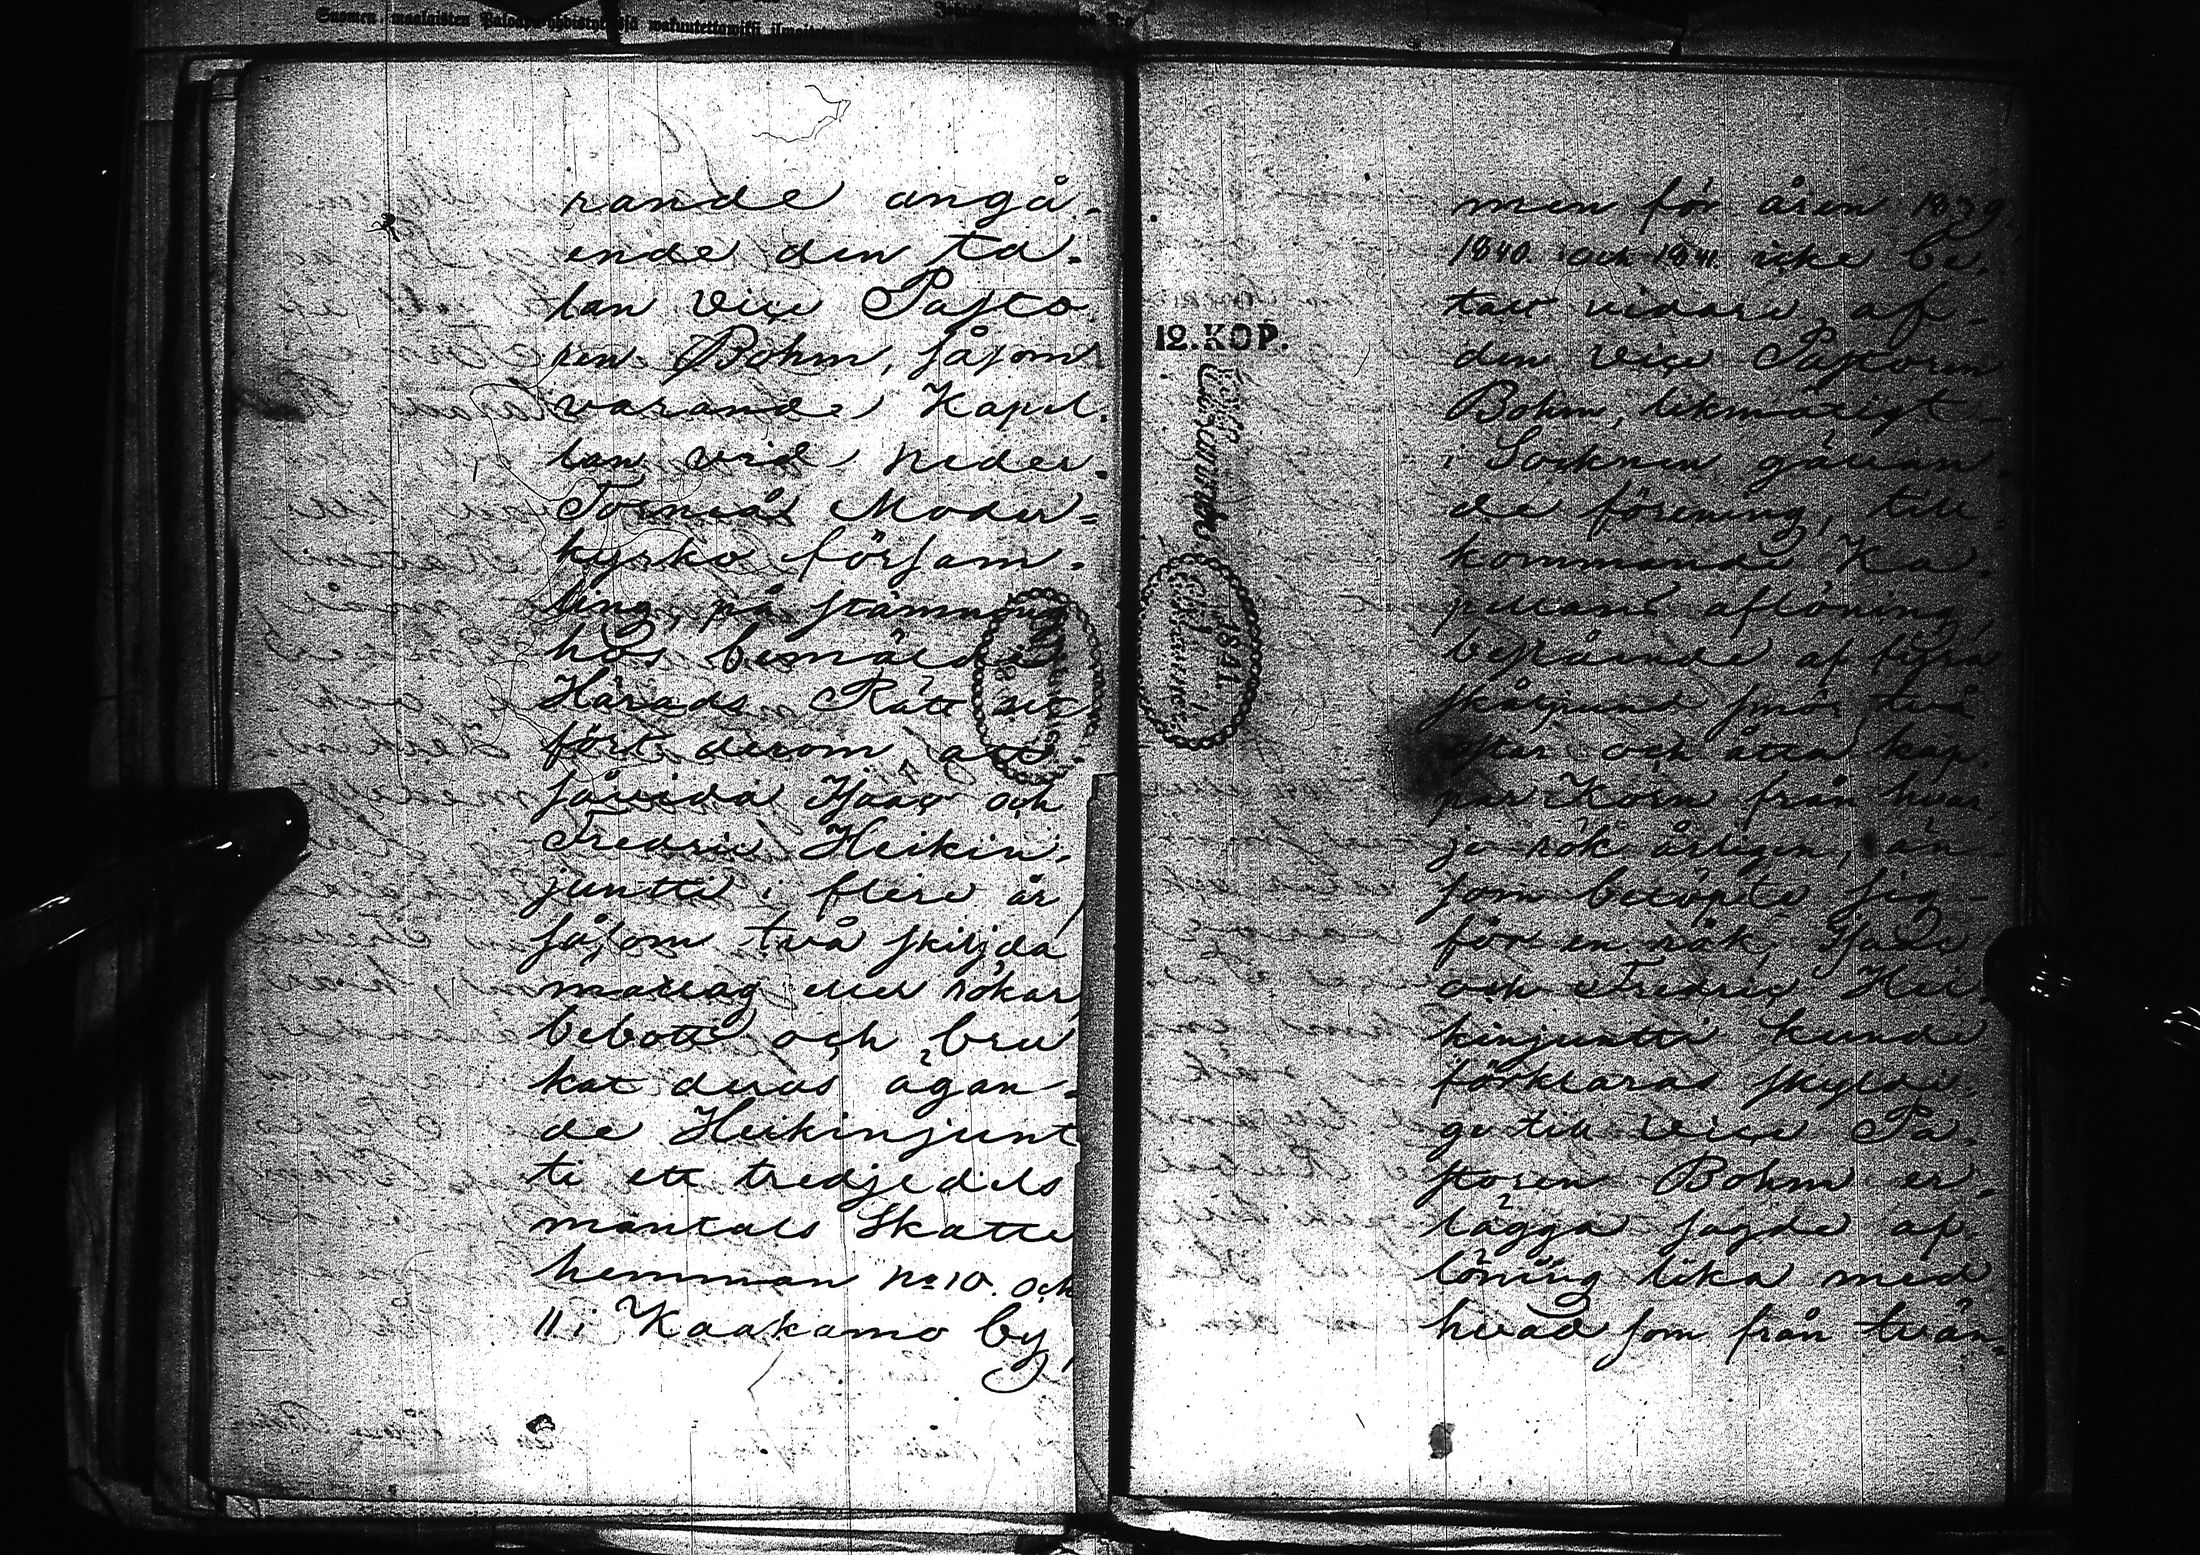 Suomen maalaisten
rande angå-
ende den ta-
lan Vice Pasto-
ren Bohm, såsom
varande Kapel-
lan vid Neder-
Torneå Moder-
kyrko försam-
ling, på stämning
hos bemälde
Härads Rätt ut-
fört derom att
såvida Isaac och
Fredric Heikin-
juntti i flere år,
såsom två skiljda
matlag eller rökar
bebott och bru
kat deras ägan-
de Heikinjunt
ti ett tredjedels
mantals Skatte
hemman No 10. och
11 i Kaakamo by,
men för åren 1839,
1840. och 1841. icke be-
talt vidare af
den Vice Pastoren
Bohm, likmätigt
i Socknen gällan-
de förening, till-
kommande Ka-
pellans aflöning,
bestående af fyra
skålpund smör, två
ostar och åtta kap-
par Korn från hvar-
je rök årligen, än
som belöpte sig
för en rök, Isaac
och Fredric Hei-
kinjuntti kunde
förklaras skyldi-
ge till Vice Pa-
storen Bohm er-
lägga sagde af-
löning lika med
hvad som från tvän-
12. KOP.
1841.